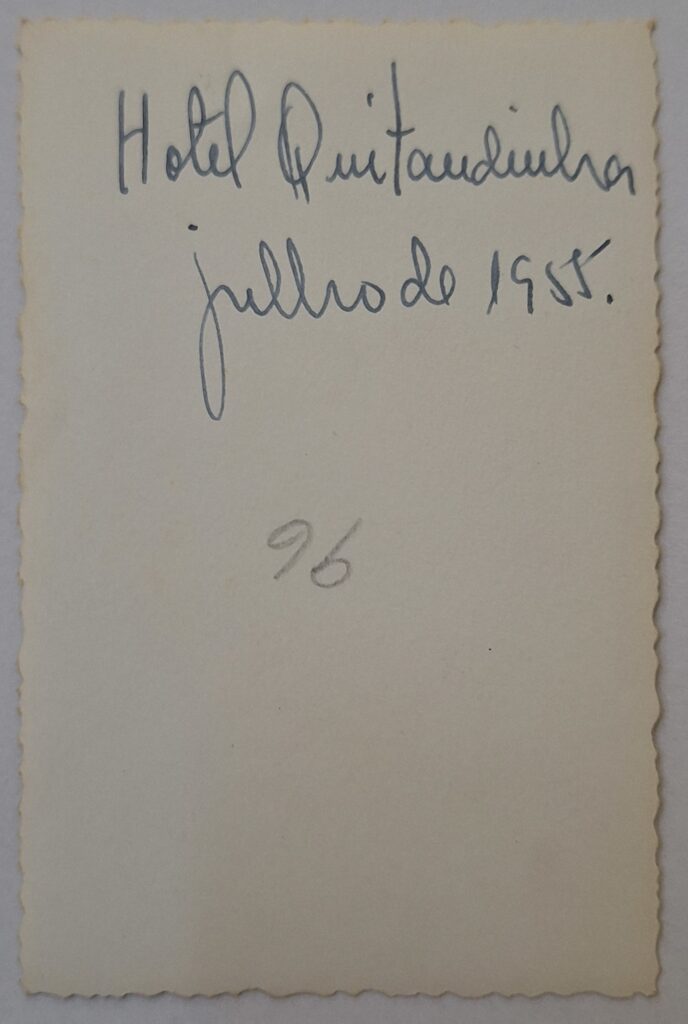 Hotel Quitandinha
julho de 1955.
96